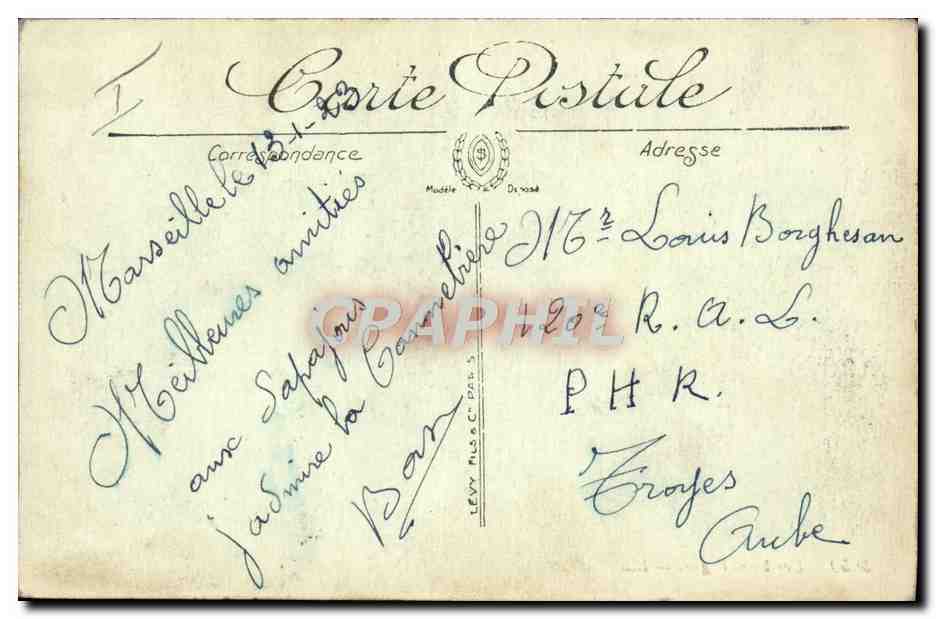 I
Carte Postale
Correspondance
Adresse
Modèle Déposé
Marseille le 13-1-23
Meilleures amitiés
aux Sapajous
j'admire la Cannebière
Mr Louis Borghesan
420e R. A. L.
P H R.
Troyes
Aube
LÉVY FILS & Cie PARIS
CPAPHIL